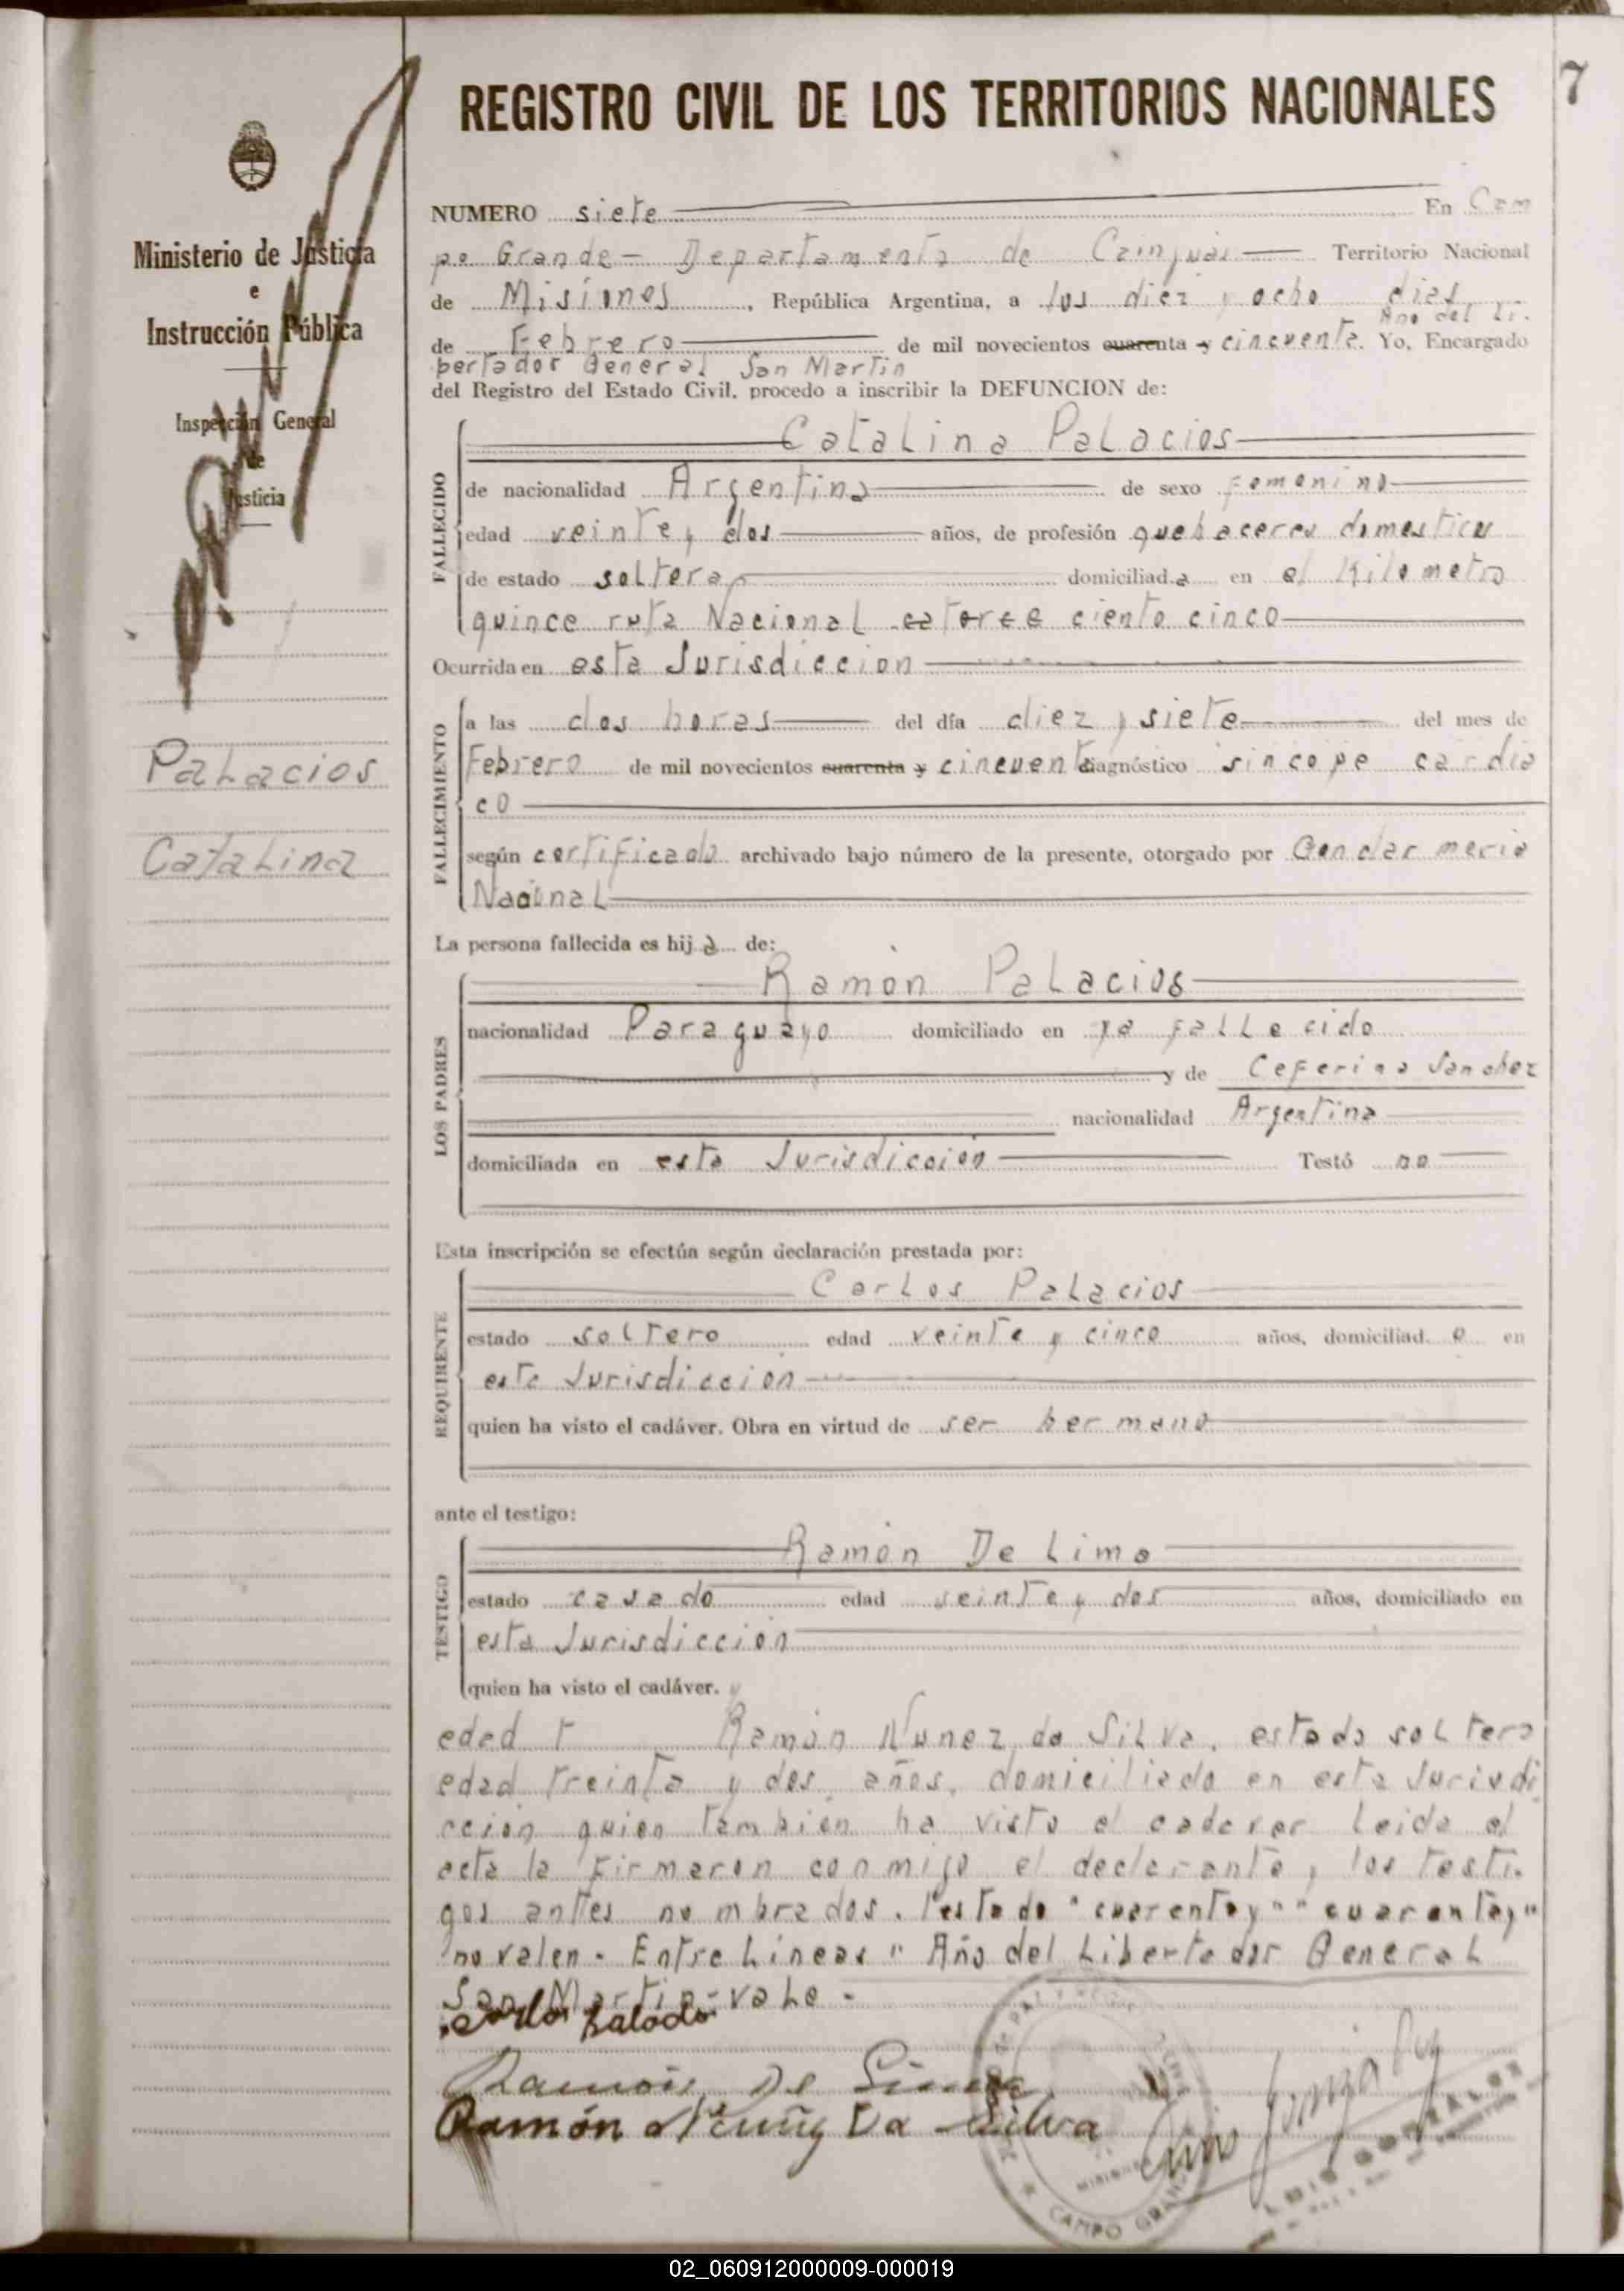 REGISTRO CIVIL DE LOS TERRITORIOS NACIONALES
7
Ministerio de Justicia
e
Instrucción Pública
Inspección General
de
Justicia
Palacios
Catalina
NUMERO siete En Cam
po Grande - Departamento de Cainguás Territorio Nacional
de Misiones, República Argentina, a los diez y ocho dias
Año del Li-
de Febrero de mil novecientos cuarenta y cincuenta. Yo, Encargado
bertador General San Martin
del Registro del Estado Civil, procedo a inscribir la DEFUNCION de:
FALLECIDO
Catalina Palacios
de nacionalidad Argentina de sexo Femenino
edad veinte y dos años, de profesión quehaceres domesticos
de estado soltera domiciliada en el Kilometro
quince ruta Nacional catorce ciento cinco
Ocurrida en esta Jurisdiccion
FALLECIMIENTO
a las dos horas del día diez y siete del mes de
Febrero de mil novecientos cuarenta y cincuenta diagnóstico sincope cardia
co
según certificado archivado bajo número de la presente, otorgado por Gendarmeria
Nacional
La persona fallecida es hija de:
LOS PADRES
Ramón Palacios
nacionalidad Paraguayo domiciliado en ya fallecido
y de Ceferina Sanchez
nacionalidad Argentina
domiciliada en esta Jurisdicción Testó no
Esta inscripción se efectúa según declaración prestada por:
REQUIRENTE
Carlos Palacios
estado soltero edad veinte y cinco años, domiciliado en
esta Jurisdicción
quien ha visto el cadáver. Obra en virtud de ser hermano
ante el testigo:
TESTIGO
Ramón De Lima
estado casado edad veinte y dos años, domiciliado en
esta Jurisdicción
quien ha visto el cadáver. y
edad t Ramón Nunez da Silva, estado soltero
edad treinta y dos años, domiciliado en esta Jurisdi
cción quien también ha visto el cadaver Leida el
acta la Firmaron conmigo el declarante y los testi-
gos antes nombrados. Testado "cuarenta y" "cuarenta y"
no valen - Entre Lineas " Año del Libertador General
San Martin - vale -
Carlos Palacio
Ramón De Lima
Ramón Nuñez Da Silva
Luis Gonzalez
LUIS GONZALEZ
MISIONES
CAMPO GRANDE
02_060912000009-000019